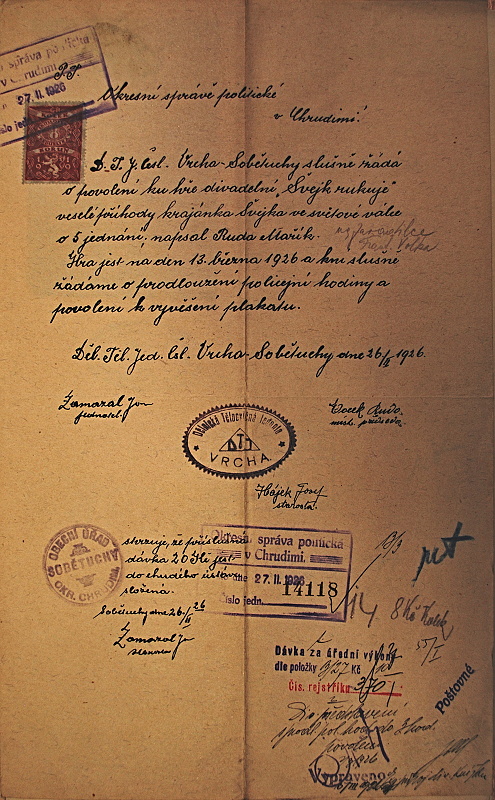 správa politická
v Chrudimi.
27. II. 1926
P. T.
Okresní správě politické
v Chrudimi!
D. T. J. Čsl. Vrcha-Sobětuchy slušně žádá
o povolení ku hře divadelní „Švejk rukuje"
veselé příhody krajánka Švejka ve světové válce
o 5 jednání. napsal Ruda Mařík.
Hra jest na den 13. března 1926 a km slušně
žádáme o prodloužení policejní hodiny a
povolení k vyvěšení plakatu.
Děl. Těl. Jed. Čsl. Vrcha-Sobětuchy dne 26/II 1926.
Zamazal Jan
jednatel
Rudo.
míst. předseda.
Dělnická Tělocvičná Jednota
DTJ
VRCHA
Hájek Josef
starosta.
OBECNÍ ÚŘAD
SOBĚTUCHY
OKR. CHRUDIM
stvrzuje, že
dávka 20 Kč jest
do chudého ústavu
složena.
Sobětuchy dne 26/II 26
Zamazal J
starosta
Okresní správa politická
v Chrudimi.
27. II. 1926
Číslo jedn. 14118
10/3
114
8 Kč Kolek
55/I
Dávka za úřední výkony
dle položky 3/27 Kč
Čís. rejstříku 370
Poštovné
Dio představení
povolen
Vypraveno